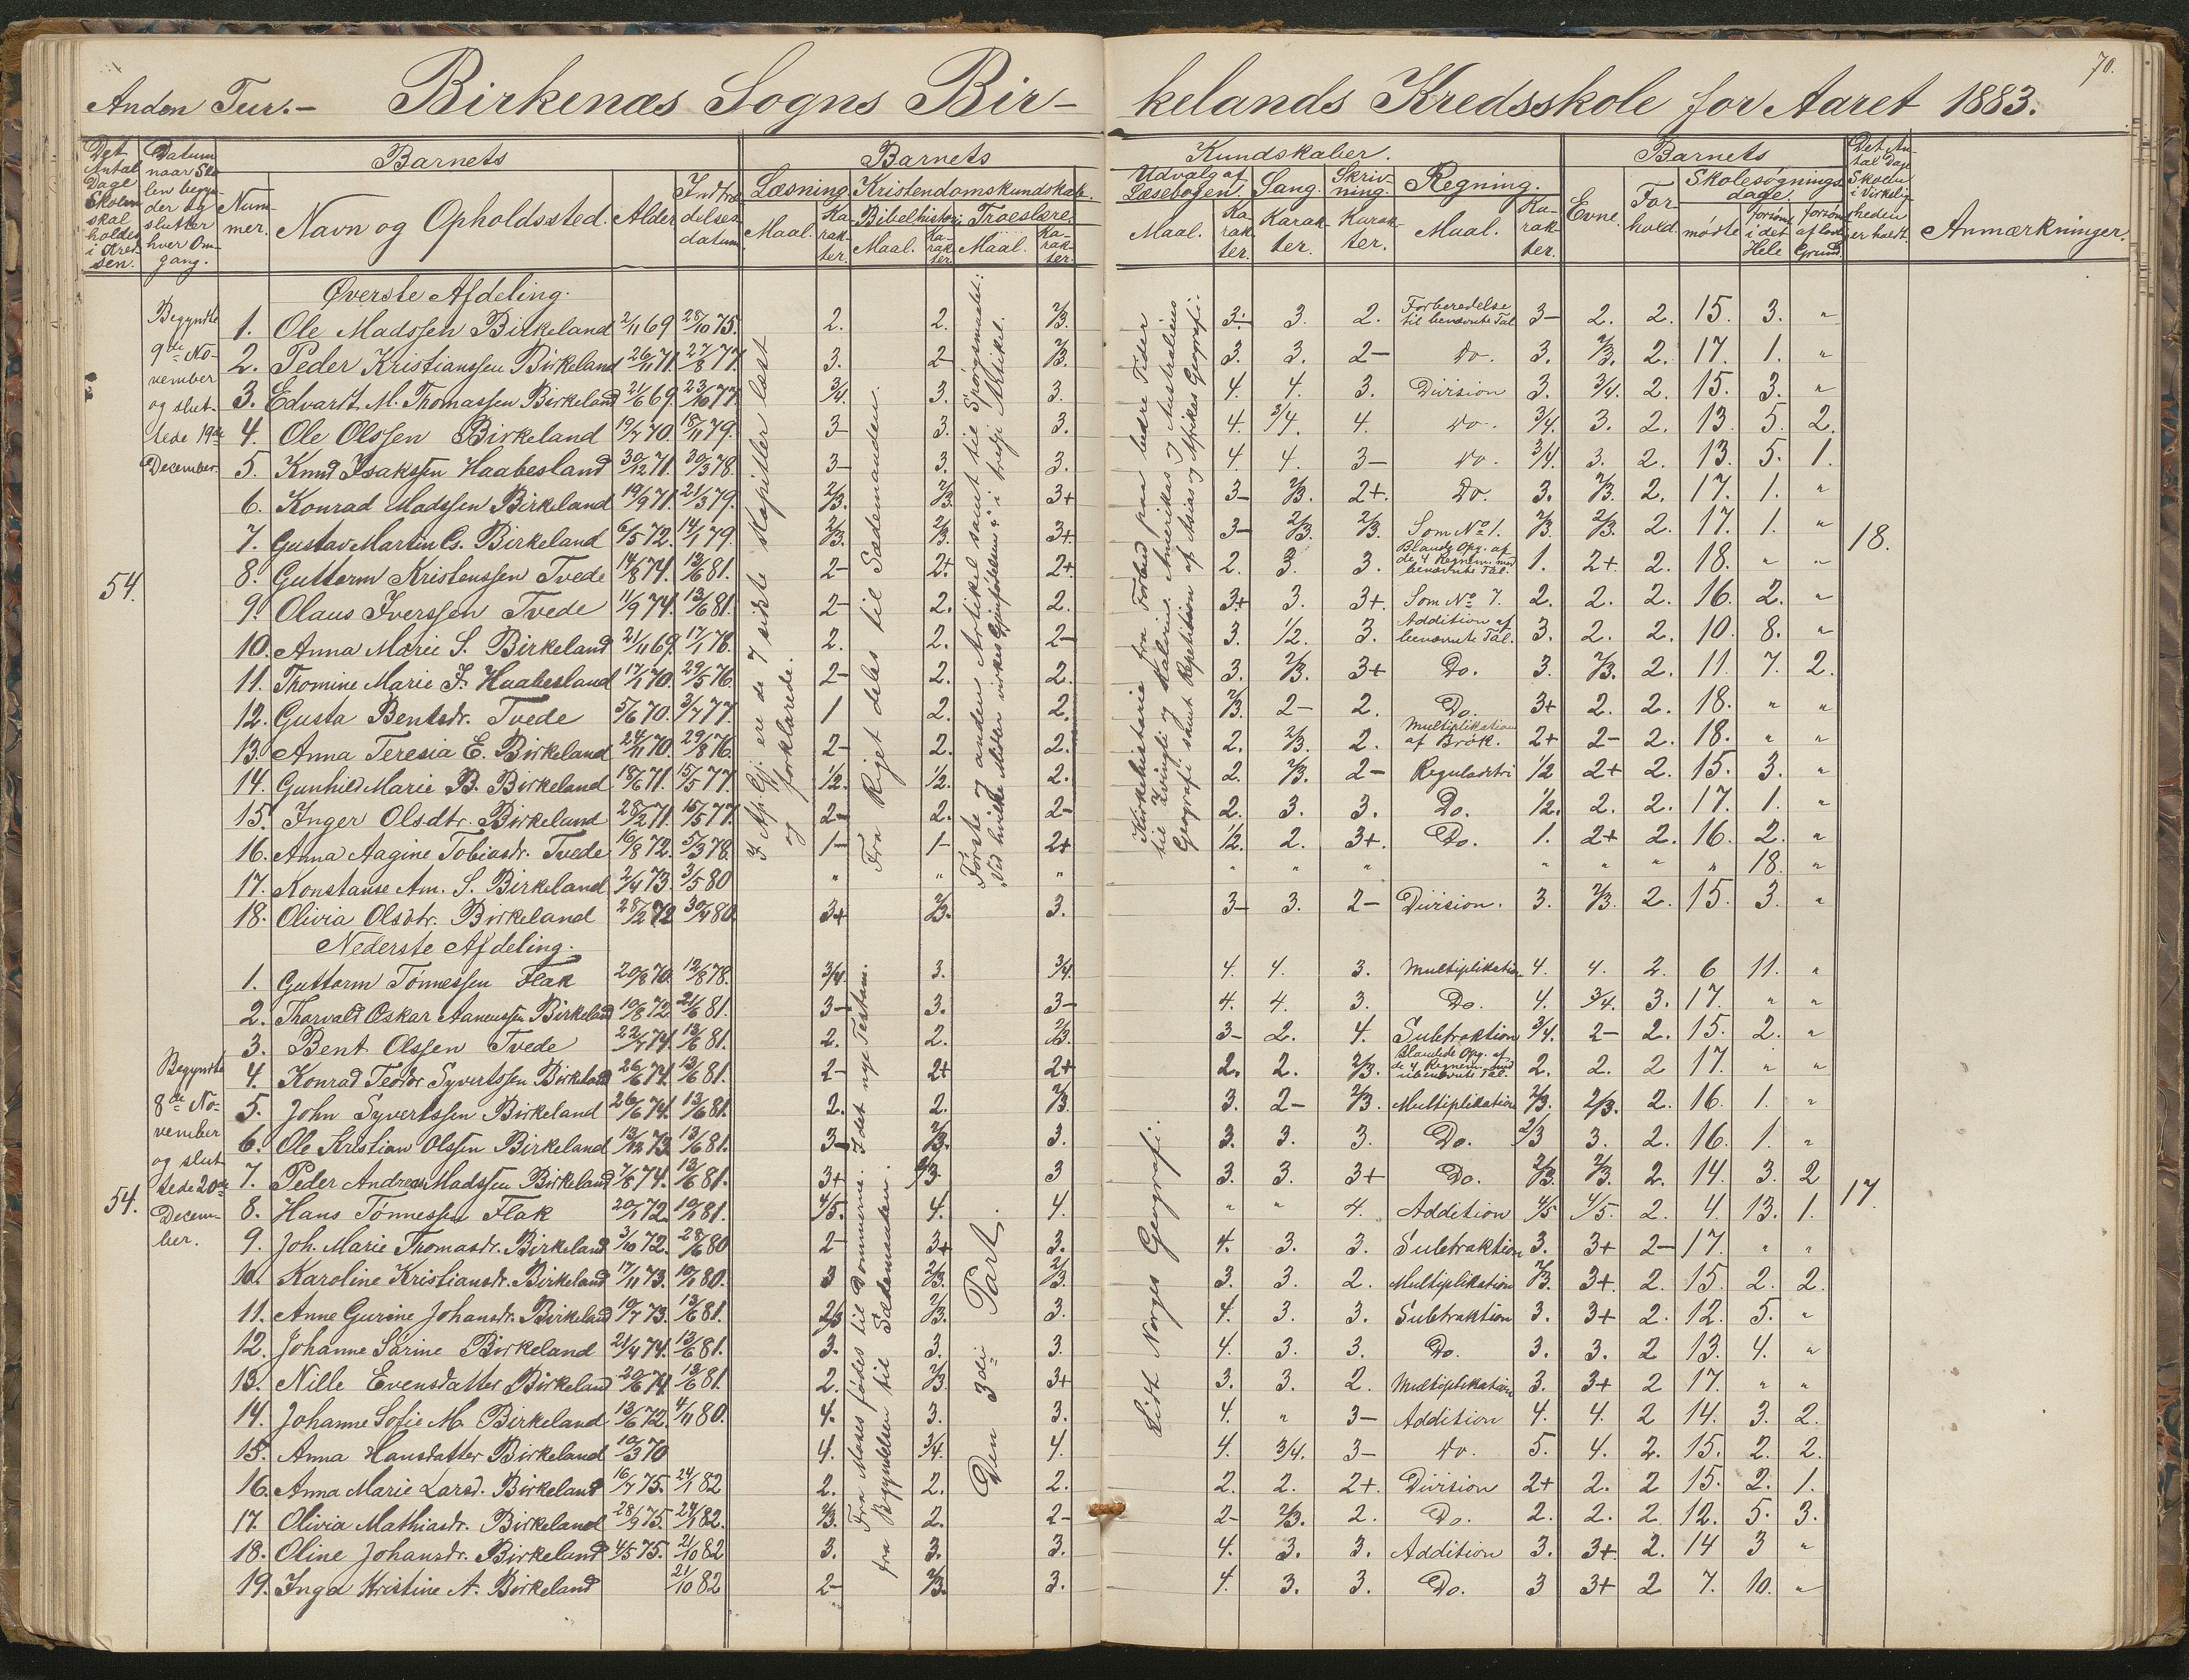 70.
Anden Tur. – Birkenæs Sogns Bir- kelands Kredsskole for Aaret 1883.
Det Antal Dage Skolen skal holdes i Kredsen.
Datum naar Skolen begynder og slutter hver Omgang.
Barnets
Nummer. Navn og Opholdssted. Alder Indtrædelsesdatum
Barnets Kundskaber.
Læsning. Maal. Karakter.
Kristendomskundskab. Bibelhistorie Maal. Karakter. Troeslære Maal. Karakter.
Udvalg af Læsebogen. Maal. Karakter.
Sang. Karakter.
Skrivning. Karakter.
Regning. Maal. Karakter.
Barnets
Evne. Forhold.
Skolesøgningsdage. mødte forsømt i det Hele forsømt af lovl. Grund.
Det Antal Dage Skolen i Virkeligheden er holdt.
Anmærkninger.
Øverste Afdeling.
Begyndte 9de November og sluttede 19de December.
54.
I Af. Gj. ere de 7 sidste Kapitler læst og forklarede.
Fra Riget deles til Sædemanden.
Første og anden Artikel samt til Spörgsmaalet: „Ved hvilke Midler virkes Gjenfödelsen“ i tredje Artikel.
Kirkehistorie fra Forbud paa bedre Tider til Zvingli og Kalvin. Amerikas og Australiens Geografi samt Repetition af Asias og Afrikas Geografi.
1. Ole Madssen Birkeland 2/11 69 28/10 75. 2. 2. 2/3. 3- 3. 2. Forberedelse til benævnte Tal 3- 2. 2. 15. 3. "
2. Peder Kristianssen Birkeland 26/11 71. 27/8 77. 3. 2- 2/3. 3. 3. 2- Do. 3. 2/3. 2. 17. 1. "
3. Edvardt M. Thomassen Birkeland 21/6 69. 23/10 77. 3/4. 3. 3. 4. 4. 3. Division 3. 3/4. 2. 15. 3. "
4. Ole Olssen Birkeland 19/7 70. 18/11 79. 3- 3. 3. 4. 3/4. 4. Do. 3/4. 3. 2. 13. 5. 2.
5. Knud Isakssen Haabesland 30/12 71. 30/3 78. 3- 3. 3. 4. 4. 3- Do. 3/4. 3. 2. 13. 5. 1.
6. Konrad Madssen Birkeland 19/9 71. 21/3 79. 2/3. 2/3. 3+ 3- 2/3. 2+. Do. 3. 2/3. 2. 17. 1. "
7. Gustav Martin Cs. Birkeland 6/5 72. 14/1 79. 2/3. 2/3. 3+ 3- 2/3. 2/3. Som No 1. 2/3. 2/3. 2. 17. 1. " 18.
8. Guttorm Kristenssen Tvede 14/8 74. 13/6 81. 2- 2+ 2+ 2. 3. 3. Blandg Opg. af de 4 Regnem. med benævnte Tal. 1. 2+ 2. 18. " "
9. Olaus Iverssen Tvede 11/9 74. 13/6 81. 2- 2. 2. 3+ 3. 3+. Som No 7. 2. 2. 2. 16. 2. "
10. Anna Marie S. Birkeland 21/11 69. 17/1 78. 2. 2. 2- 3. 1/2. 3. Addition af benævnte Tal. 3. 2. 2. 10. 8. "
11. Thomine Marie J. Haabesland 17/1 70. 29/5 76. 2- 2. 2. 3. 2/3. 3+ Do. 3. 2/3. 2. 11. 7. 2.
12. Gusta Bentsdr. Tvede 5/6 70. 3/7 77. 1 2. 2. 2/3. 2- 2. Do. 3+ 2. 2. 18. " "
13. Anna Teresia E. Birkeland 24/11 70. 29/8 76. 2- 2. 2. 2. 2/3. 2. Multiplikation af Brök. 2+ 2- 2. 18. " "
14. Gunhild Marie B. Birkeland 18/6 71. 15/5 77. 1/2. 1/2. 2. 2. 2/3. 2- Reguladetri 1/2 2+ 2. 15. 3. "
15. Inger Olsdtr. Birkeland 28/2 71. 15/5 77. 2- 2. 2- 2. 3. 3. Do. 1/2. 2. 2. 17. 1. "
16. Anna Aagine Tobiasdr. Tvede 16/8 72. 5/3 78. 1- 1- 2+ 1/2. 2. 3+. Do. 1. 2+ 2. 16. 2. "
17. Konstanse Am. S. Birkeland 2/4 73. 3/5 80 " " " " " " " " " " 18. "
18. Olivia Olsdtr. Birkeland 28/2 72 30/4 80. 3+ 2/3. 3. 3- 3. 2- Division. 3. 2/3. 2. 15. 3. "
Nederste Afdeling.
Begyndte 8de November og sluttede 20de December.
54.
Fra Moses födes til Dommerne. I det nye Testam. fra Begyndelsen til Sædemanden.
Den 3die Part.
Lidt Norges Geografi.
1. Guttorm Tönnessen Flak 20/8 70. 12/8 78. 3/4. 3. 3/4. 4. 4. 3. Multiplikation 4. 4. 2. 6 11. "
2. Thorvald Oskar Aanenssen Birkeland 10/8 72. 21/6 81. 3- 3. 3- 4. 4. 3. Do. 4. 3/4. 3. 17. " "
3. Bent Olssen Tvede 22/7 74. 13/6 81. 2. 2. 2/3. 3- 2. 4. Subtraktion 3/4. 2- 2. 15. 2. "
4. Konrad Teodor Syvertssen Birkeland 26/6 74. 13/6 81. 2- 2+ 2+ 2. 2. 2/3. Blandede Opg. af de 4 Regnem. med ubenævnte Tal. 2. 2. 2 17. " "
5. John Syvertssen Birkeland 26/6 74. 13/6 81. 2. 2. 2/3. 3. 2- 2/3. Multiplikation 2/3. 2/3. 2. 16. 1. "
6. Ole Kristian Olssen Birkeland 13/12 73. 13/6 81. 3- 2/3. 3. 3. 3. 3. Do. 2/3 3. 2. 16. 1. "
7. Peder Andreas Madssen Birkeland 7/8 74. 13/6 81. 3+ 2/3. 3 3. 3. 3+ Do. 2/3. 2/3. 2. 14. 3. 2
8. Hans Tönnessen Flak 20/1 72. 10/1 81. 4/5. 4. 4. " " 4. Addition 4/5 4/5. 2. 4. 13. 1. 17.
9. Joh. Marie Thomasdr. Birkeland 3/10 72. 28/6 80 2- 3+ 3. 4. 3. 3. Subtraktion 3. 3+ 2- 17. " "
10. Karoline Kristiansdr. Birkeland 17/11 73. 10/1 80. 3 2/3. 2/3. 3. 3. 2. Multiplikation 2/3. 3+. 2. 15. 2. 2.
11. Anne Gurine Johansdr. Birkeland 10/7 73. 13/6 81. 2/3 2/3. 3. 4. 3. 3. Subtraktion 3. 3+ 2. 12. 5. "
12. Johanne Sarine Birkeland 21/4 74. 13/6 81. 3. 3. 3. 4. 3. 3. Do. 3. 3. 2 13. 4. "
13. Nille Evensdatter Birkeland 20/6 74. 13/6 81. 2. 2/3. 3+ 3. 3. 2. Multiplikation 3. 3+ 2 17. " "
14. Johanne Sofie M. Birkeland 13/6 72. 4/11 80. 4. 3. 3. 4. " 3- Addition 4. 4. 2 14. 3. 2.
15. Anna Hansdatter Birkeland 10/3 70 4. 3/4. 4. 4. 3/4. 3- Do. 5. 4. 2. 15. 2. 2.
16. Anna Marie Larsd. Birkeland 16/7 75. 24/1 82 2. 2. 2. 2. 2. 2+. Division 2+ 2. 2 15. 2. 1.
17. Olivia Mathiasdr. Birkeland 28/9 75. 24/1 82. 2/3. 2. 2- 2- 2/3. 2. Do. 2. 2. 2. 12. 5. 3.
18. Oline Johansdr. Birkeland 4/5 75. 21/10 82 3. 3. 3. 4. 3. 3. Addition 3. 3+ 2. 14 3 "
19. Inga Kristine A. Birkeland 21/10 82 2- 2/3. 3. 4. 3. 3. Do. 3 3+ 2 7. 10. "